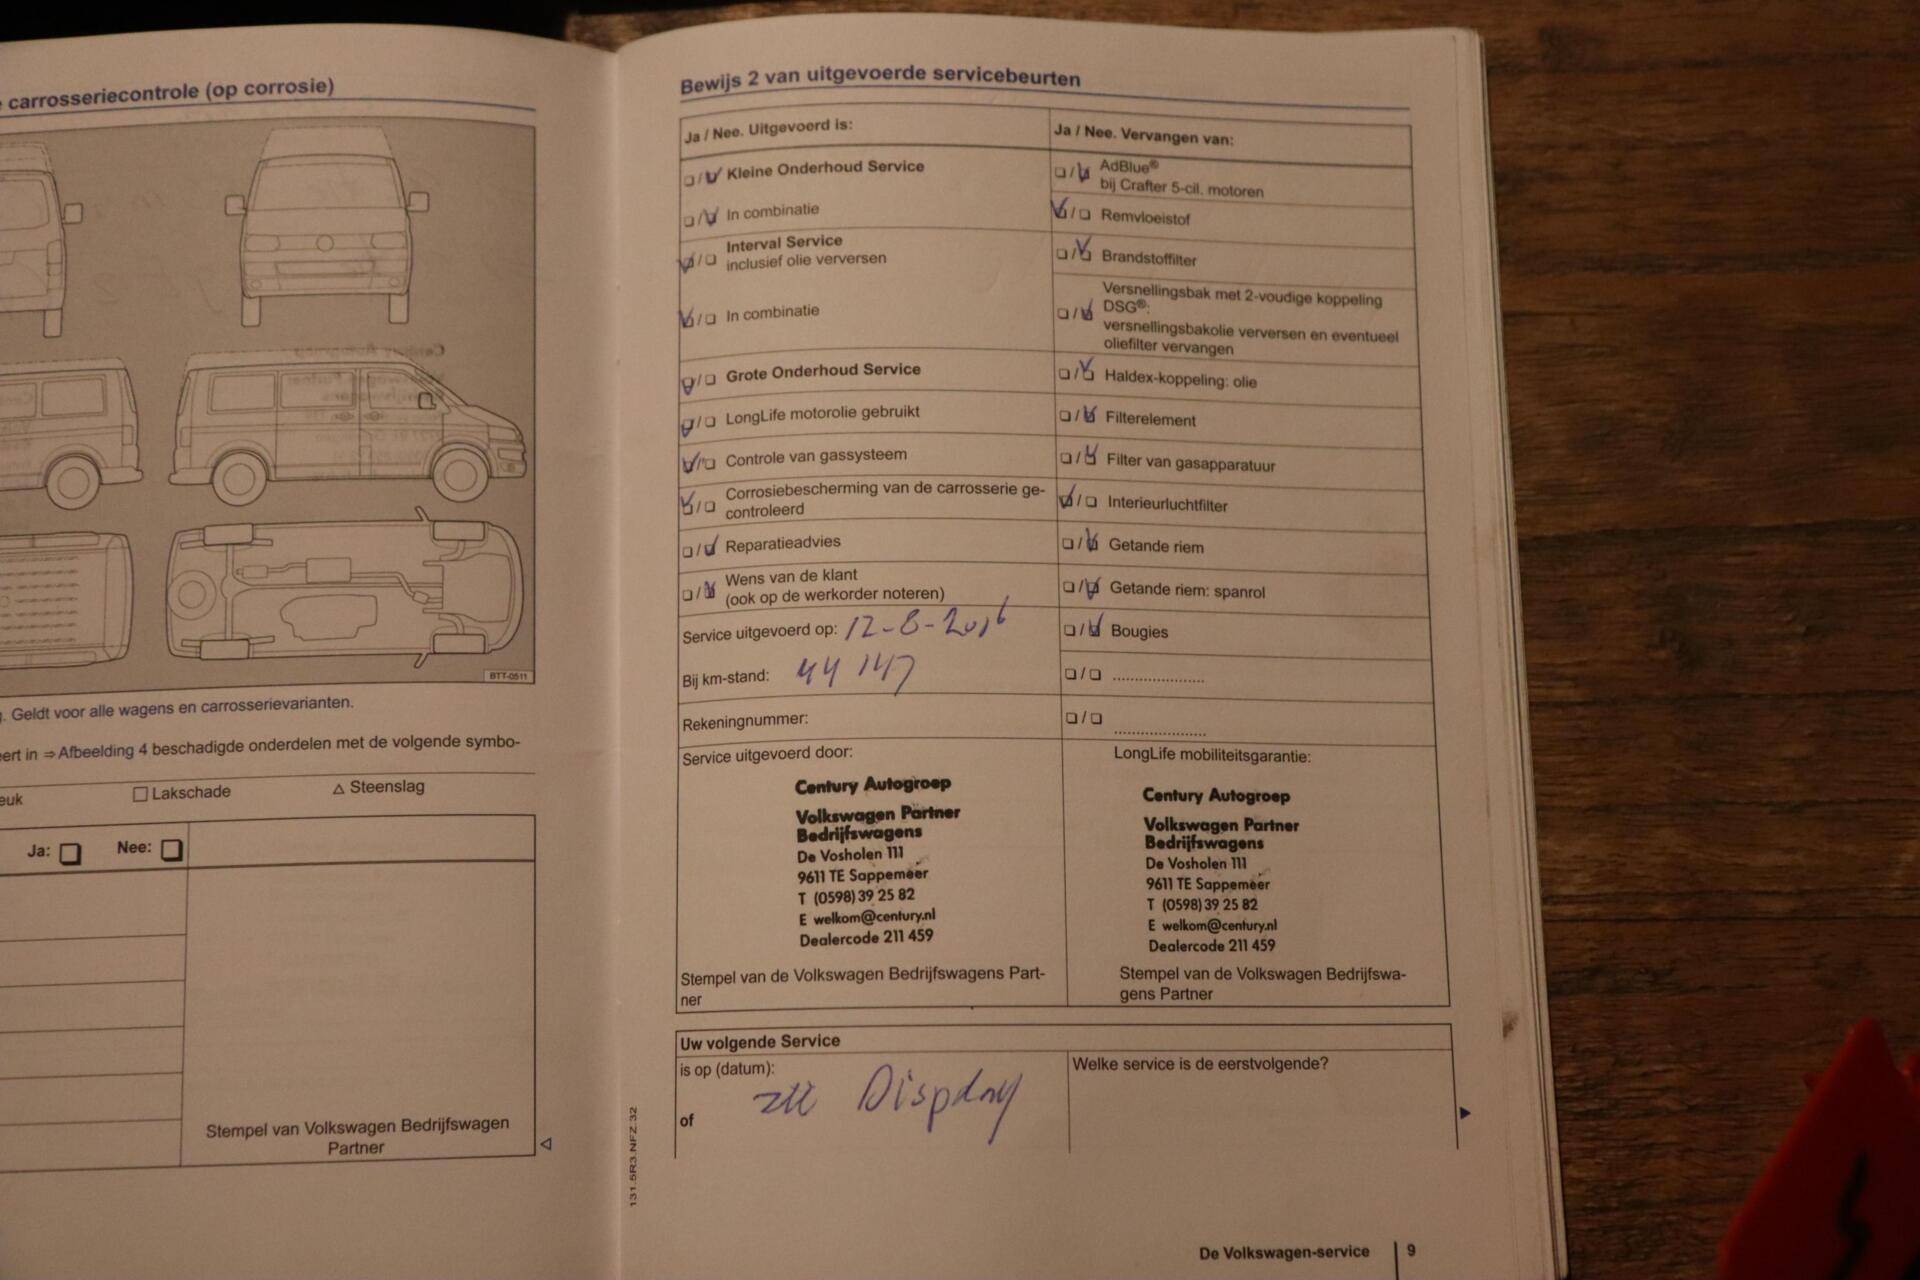 carrosseriecontrole (op corrosie)
BTT-0511
. Geldt voor alle wagens en carrosserievarianten.
eert in ⇒ Afbeelding 4 beschadigde onderdelen met de volgende symbo-
euk □ Lakschade △ Steenslag
Ja: □ Nee: □
Stempel van Volkswagen Bedrijfswagen
Partner
Bewijs 2 van uitgevoerde servicebeurten
Ja / Nee. Uitgevoerd is:
Kleine Onderhoud Service
In combinatie
Interval Service
inclusief olie verversen
In combinatie
Grote Onderhoud Service
LongLife motorolie gebruikt
Controle van gassysteem
Corrosiebescherming van de carrosserie ge-
controleerd
Reparatieadvies
Wens van de klant
(ook op de werkorder noteren)
Service uitgevoerd op: 12-8-2016
Bij km-stand: 44 147
Rekeningnummer:
Ja / Nee. Vervangen van:
AdBlue®
bij Crafter 5-cil. motoren
Remvloeistof
Brandstoffilter
Versnellingsbak met 2-voudige koppeling
DSG®:
versnellingsbakolie verversen en eventueel
oliefilter vervangen
Haldex-koppeling: olie
Filterelement
Filter van gasapparatuur
Interieurluchtfilter
Getande riem
Getande riem: spanrol
Bougies
Service uitgevoerd door:
Century Autogroep
Volkswagen Partner
Bedrijfswagens
De Vosholen 111
9611 TE Sappemeer
T (0598) 39 25 82
E welkom@century.nl
Dealercode 211 459
Stempel van de Volkswagen Bedrijfswagens Part-
ner
LongLife mobiliteitsgarantie:
Century Autogroep
Volkswagen Partner
Bedrijfswagens
De Vosholen 111
9611 TE Sappemeer
T (0598) 39 25 82
E welkom@century.nl
Dealercode 211 459
Stempel van de Volkswagen Bedrijfswa-
gens Partner
Uw volgende Service
is op (datum):
Display
of
Welke service is de eerstvolgende?
131.5R3.NFZ.32
De Volkswagen-service 9